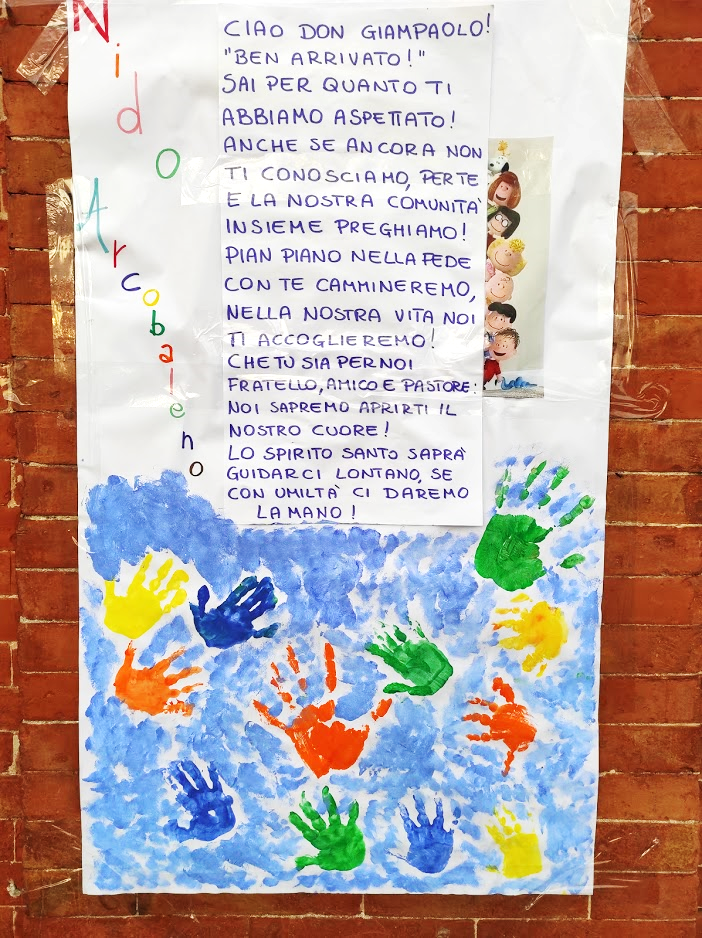 Nido
Arcobaleno
CIAO DON GIAMPAOLO!
"BEN ARRIVATO!"
SAI PER QUANTO TI
ABBIAMO ASPETTATO!
ANCHE SE ANCORA NON
TI CONOSCIAMO, PER TE
E LA NOSTRA COMUNITÀ
INSIEME PREGHIAMO!
PIAN PIANO NELLA FEDE
CON TE CAMMINEREMO,
NELLA NOSTRA VITA NOI
TI ACCOGLIEREMO!
CHE TU SIA PER NOI
FRATELLO, AMICO E PASTORE:
NOI SAPREMO APRIRTI IL
NOSTRO CUORE!
LO SPIRITO SANTO SAPRÀ
GUIDARCI LONTANO, SE
CON UMILTÀ CI DAREMO
LA MANO!